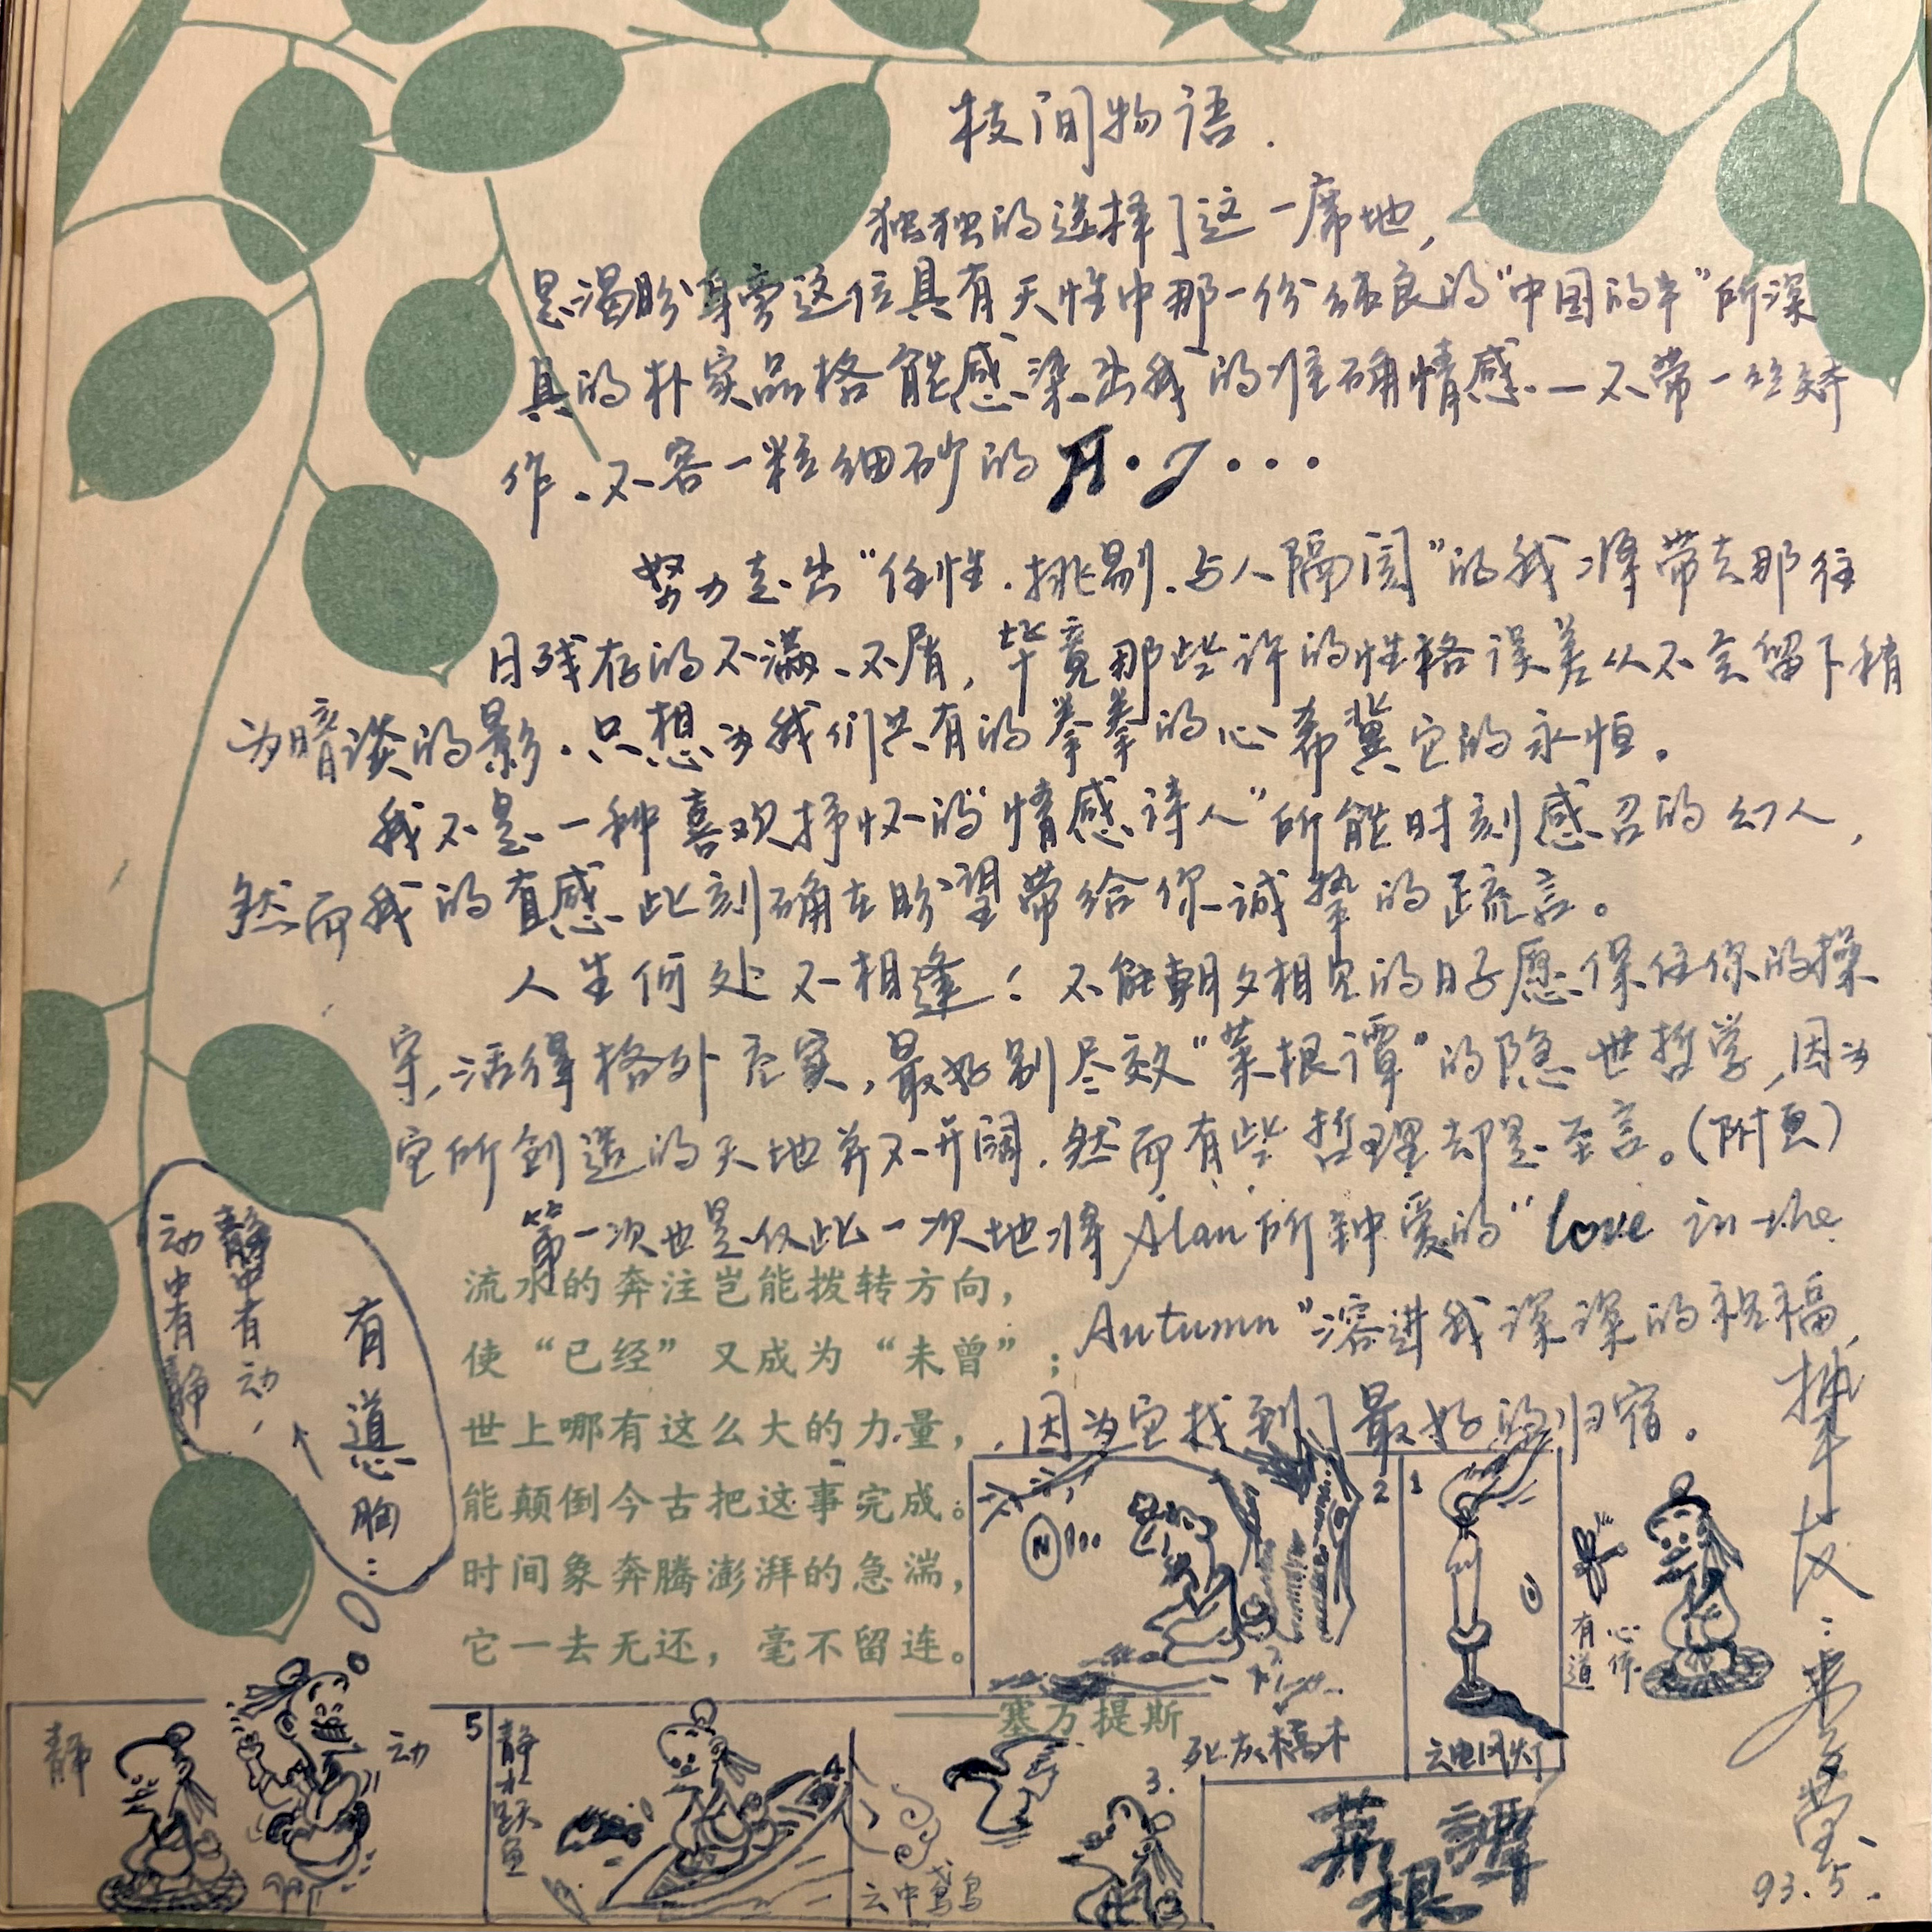 枝间物语.
独独的选择了这一席地,
是渴盼身旁这位具有天性中那一份纯良的"中国的牛"所深
具的朴实品格能感染出我的准确情感—不带一丝矫
作、不容一粒细砂的 A·J···
努力走出"任性.挑剔.与人隔阂"的我将带去那往
日残存的不满、不屑,毕竟那些许的性格误差从不会留下稍
为暗淡的影.只想为我们共有的拳拳的心希冀它的永恒。
我不是一种喜欢抒怀的"情感诗人"所能时刻感召的幻人,
然而我的直感此刻确在盼望带给你诚挚的疏言。
人生何处不相逢!不能朝夕相见的日子愿保住你的操
守,活得格外充实,最好别尽效"菜根谭"的隐世哲学,因为
它所创造的天地并不开阔.然而有些哲理却是至言。(附页)
第一次也是仅此一次地将Alan所钟爱的"love in the
Autumn"溶进我深深的祝福,
因为它找到了最好的归宿。
流水的奔注岂能拨转方向,
使“已经”又成为“未曾”;
世上哪有这么大的力量,
能颠倒今古把这事完成。
时间象奔腾澎湃的急湍,
它一去无还,毫不留连。
——塞万提斯
有道心胸:
静中有动,
动中有静
挚友:
93.5.
2
1
死灰槁木
云电风灯
有道
心体
静
动
5
静水跃鱼
4
云中
3.
菜根譚